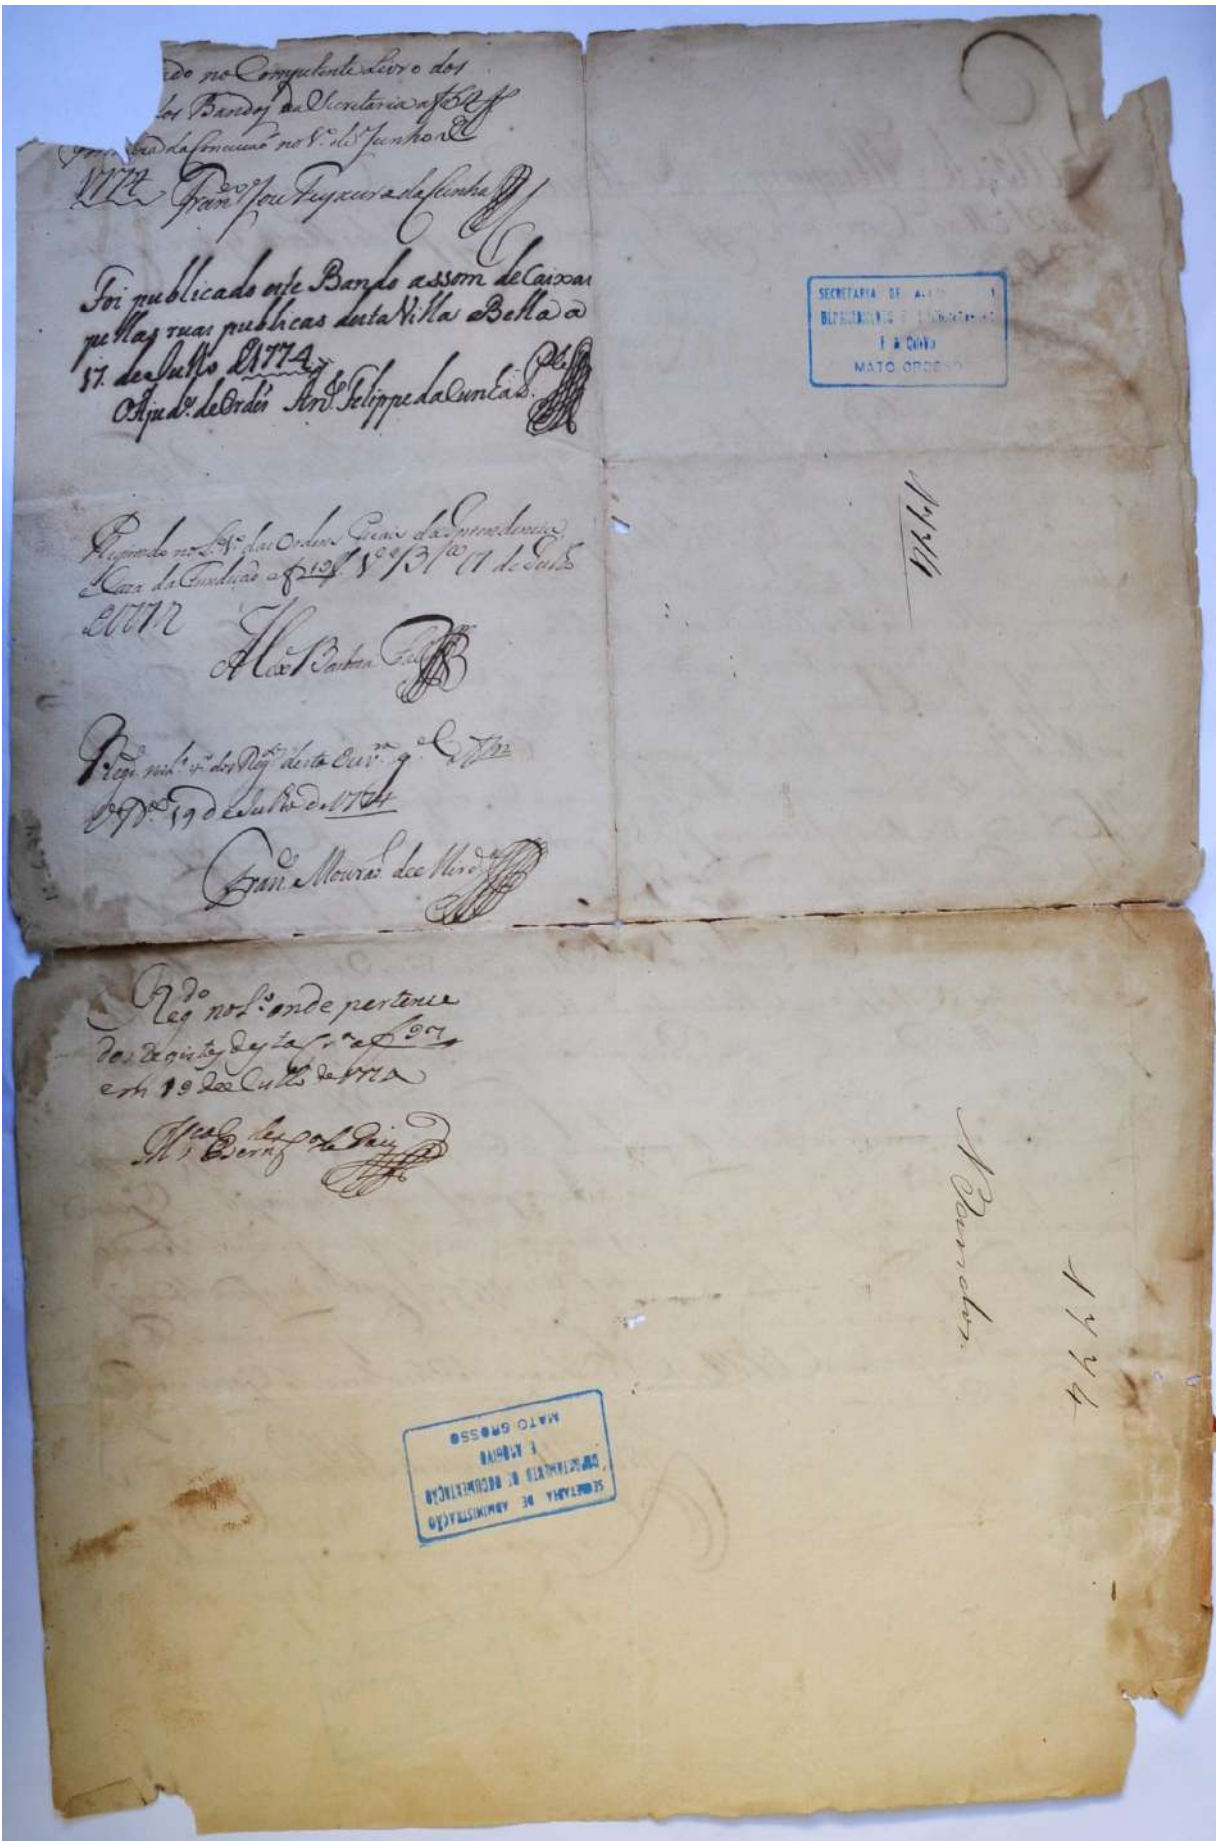 do no Competente Livro dos
los Bandos da Secretaria a f
da Conceicaõ no 1.º de Junho de
1774 Fran.co Jozé Teyxeira da Cunha
Foi publicado este Bando assom de Caixas
pellas ruas publicas desta Villa Bella a
17. de Julho de 1774
O Ajud.e de Ordĩs An.to Felippe da Cunha
Reg.do no L.º 1.º das Ordens Geraes da Intendencia
e Caza da Fundicaõ a f 17 de Julho
de 1774
Alex.e Barboza
Reg. no L.º dos Reg.os desta Ouv.ra g.al
19 de Julho de 1774
Fran.co Mouraõ de Mir.da
Reg.do no L.º onde pertence
dos Registos desta a f 97
em 19 de Julho de 1774
SECRETARIA DE
E ARQUIVO
MATO GROSSO
1774
Bandos.
1774
SECRETARIA DE ADMINISTRAÇÃO
DEPARTAMENTO DE DOCUMENTAÇÃO
E ARQUIVO
MATO GROSSO